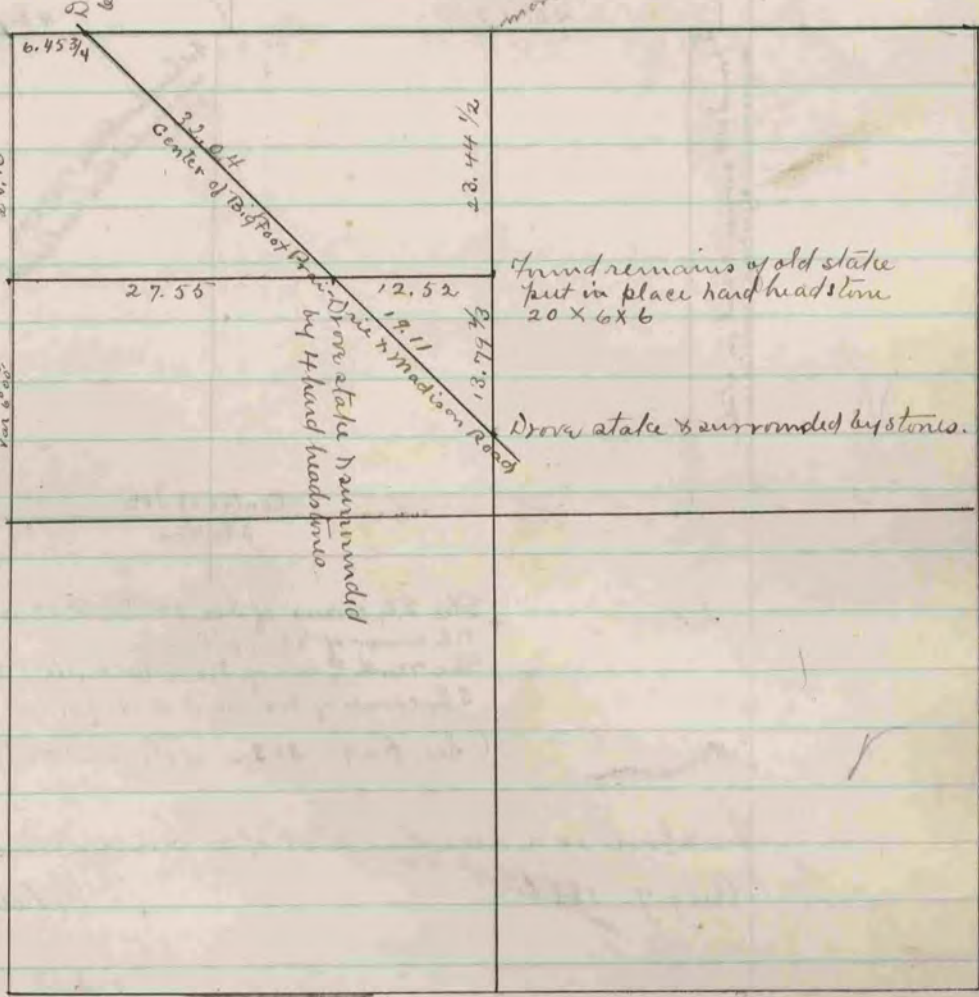 6.45 3/4
32.04
Center of Big Foot Prairie & Madison Road
23.44 1/2
27.55
12.52
19.11
13.79 1/2
Found remains of old stake
put in place hard headstone
20 X 6 X 6
Drove stake & surrounded by stones.
Drove stake & surrounded
by 4 hard headstones.